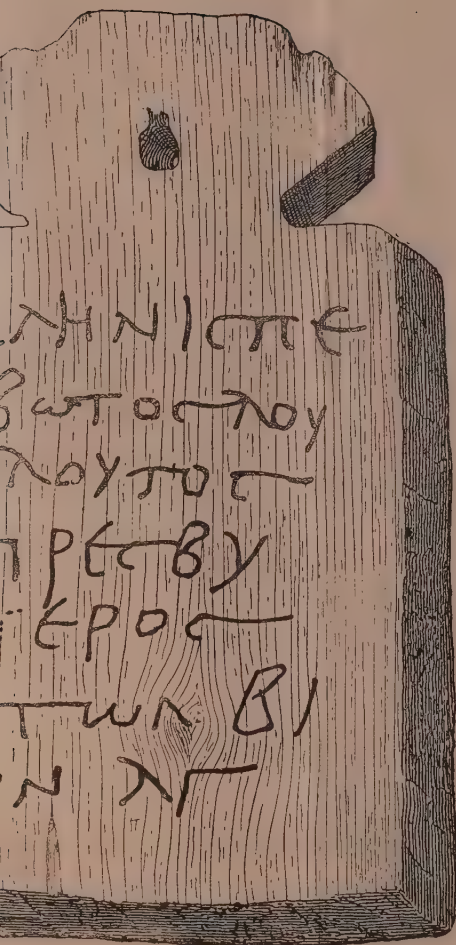 ΛΗΝΙϹΠΕ
βωτοϲλου
λουτοϲ
πρεϲβυ
τεροϲ
των Βι
ν λγ